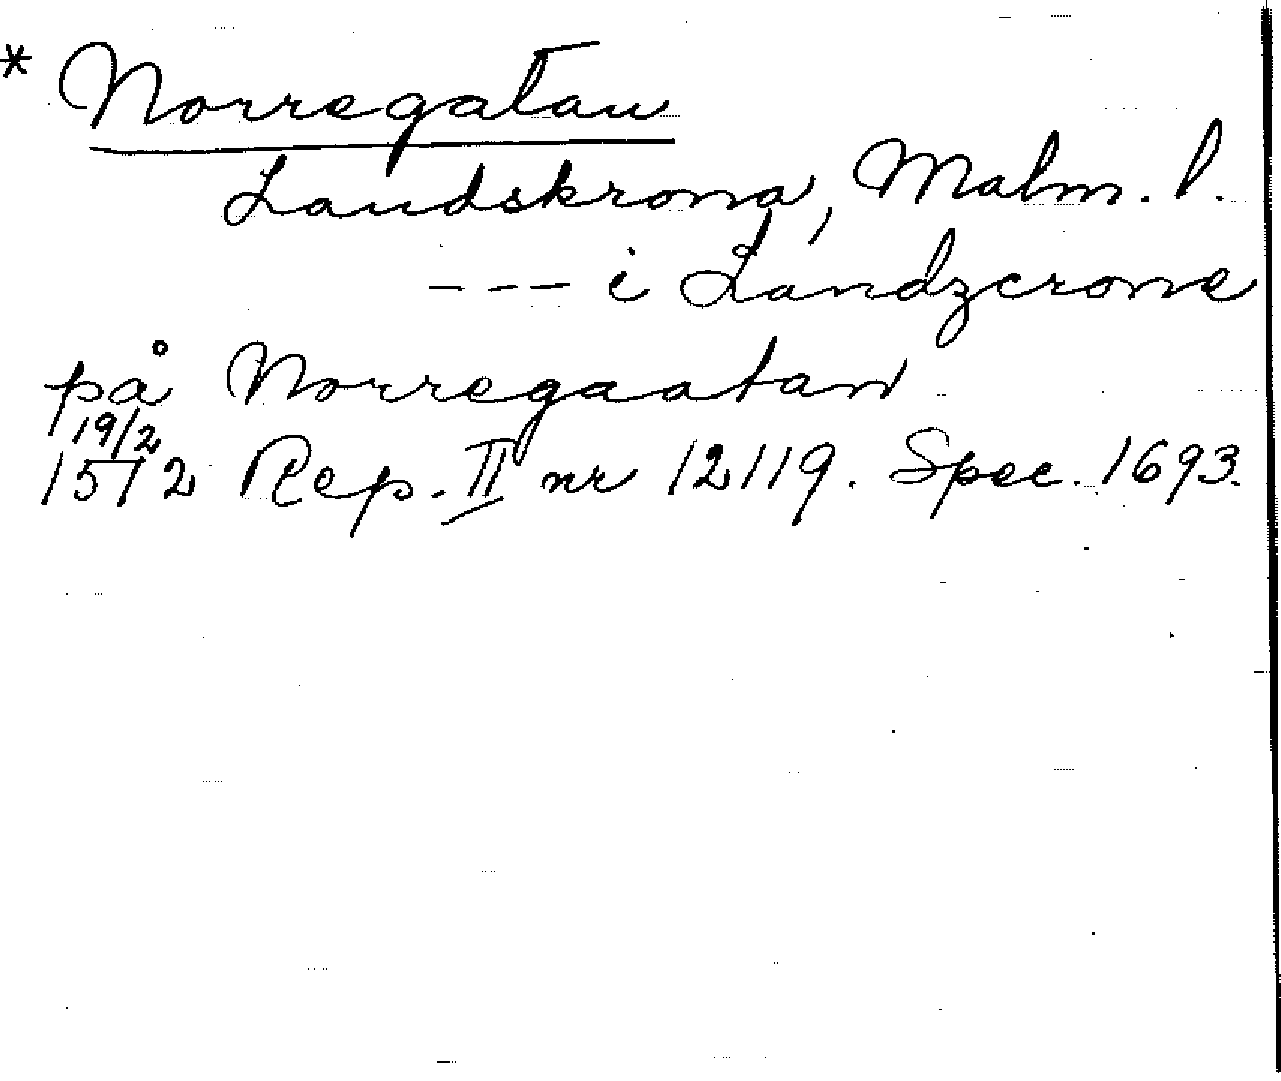 * Norregatan
Landskrona, Malm. l.
--- i Landzcrone
på Norregaatan
19/2
1572 Rep. II nr 12119. Spec. 1693.